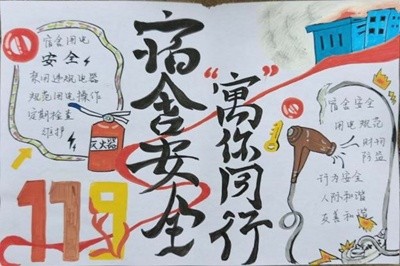 宿舍用电
安全
禁用违规电器
规范用电操作
定期检查
维护
灭火器
119
宿舍安全
“寓你同行”
宿舍安全
用电规范
财物
防盗
行为安全
人际和谐
友善和谐